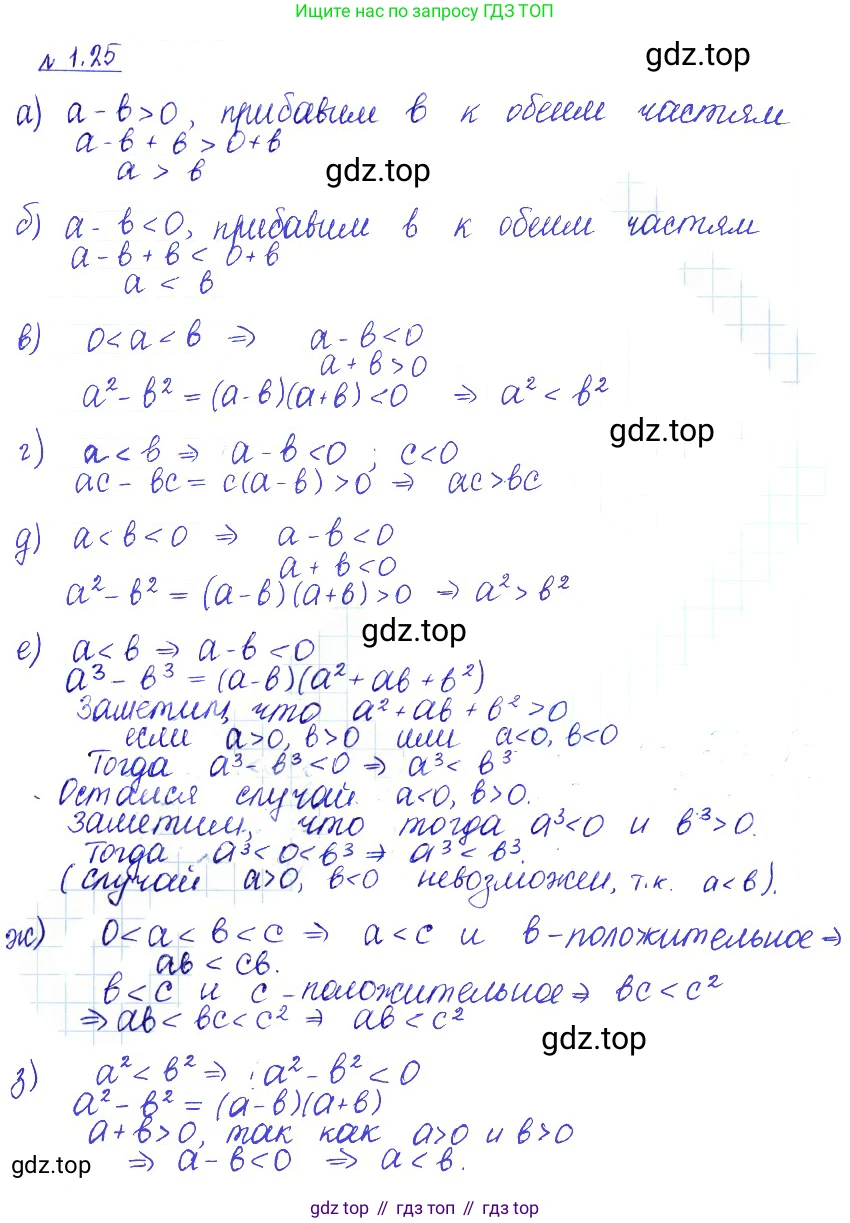 Ищите нас по запросу ГДЗ ТОП
№ 1.25
gdz.top
а) a - b > 0, прибавим b к обеим частям
a - b + b > 0 + b
a > b
gdz.top
б) a - b < 0, прибавим b к обеим частям
a - b + b < 0 + b
a < b
в) 0 < a < b ⇒ a - b < 0
a + b > 0
a² - b² = (a - b)(a + b) < 0 ⇒ a² < b²
gdz.top
г) a < b ⇒ a - b < 0 ; c < 0
ac - bc = c(a - b) > 0 ⇒ ac > bc
д) a < b < 0 ⇒ a - b < 0
a + b < 0
a² - b² = (a - b)(a + b) > 0 ⇒ a² > b²
gdz.top
е) a < b ⇒ a - b < 0
a³ - b³ = (a - b)(a² + ab + b²)
Заметим, что a² + ab + b² > 0
если a > 0, b > 0 или a < 0, b < 0
Тогда a³ - b³ < 0 ⇒ a³ < b³
Остался случай a < 0, b > 0.
Заметим, что тогда a³ < 0 и b³ > 0.
Тогда a³ < 0 < b³ ⇒ a³ < b³.
(случай a > 0, b < 0 невозможен, т.к. a < b).
ж) 0 < a < b < c ⇒ a < c и b - положительное ⇒
ab < cb.
b < c и c - положительное ⇒ bc < c²
⇒ ab < bc < c² ⇒ ab < c²
gdz.top
з) a² < b² ⇒ a² - b² < 0
a² - b² = (a - b)(a + b)
a + b > 0, так как a > 0 и b > 0
gdz.top
⇒ a - b < 0 ⇒ a < b.
gdz top // гдз топ // gdz top